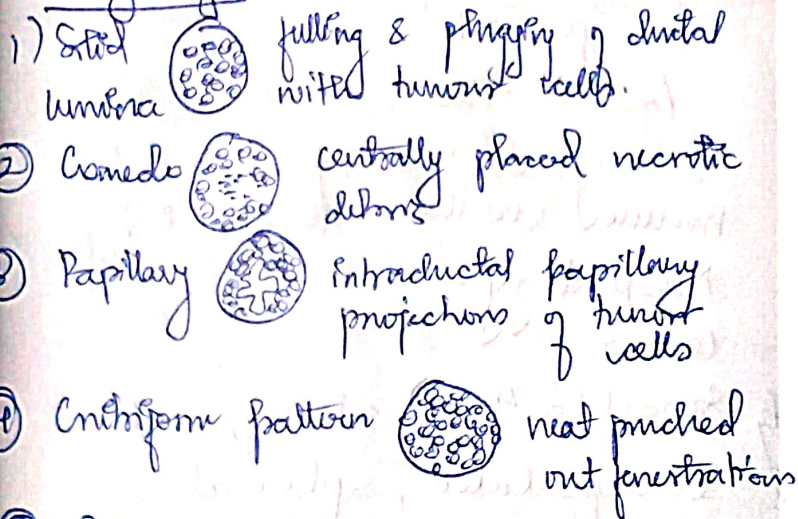 1) Solid filling & plugging of ductal
lumina with tumour cells.
2) Comedo centrally placed necrotic
debris
3) Papillary intraductal papillary
projections of tumor
cells
4) Cribriform pattern neat punched
out fenestrations